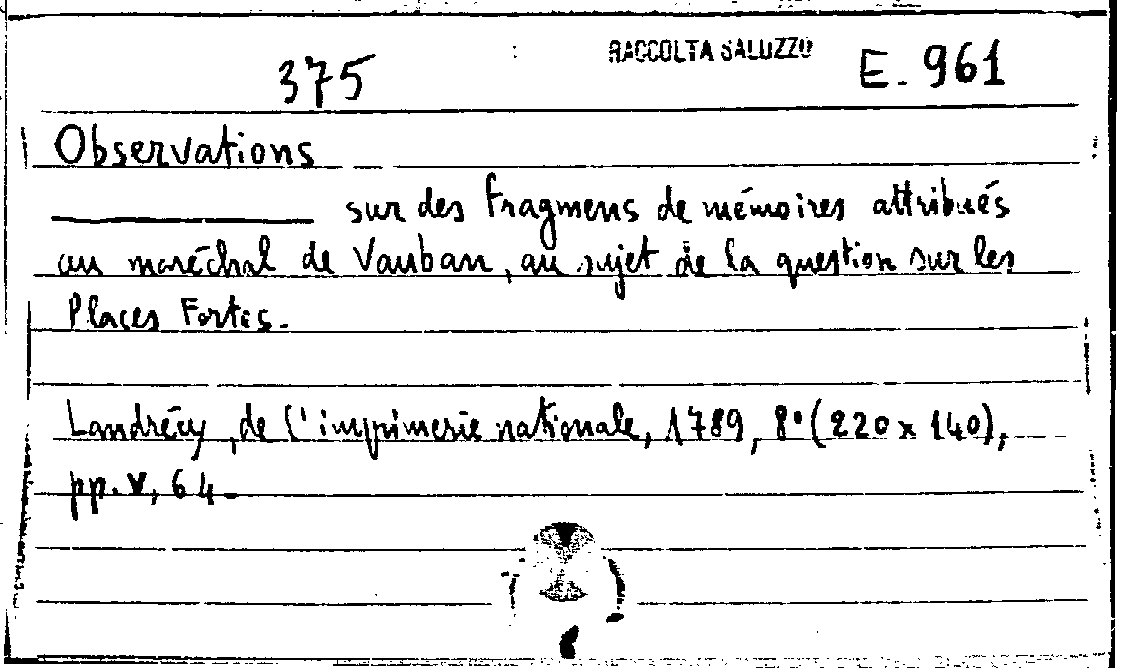 375 RACCOLTA SALUZZO E. 961
Observations
sur des fragmens de mémoires attribués
au maréchal de Vauban, au sujet de la question sur les
Places Fortes.
Landrécy, de l'imprimerie nationale, 1789, 8° (220 x 140),
pp. V, 64.